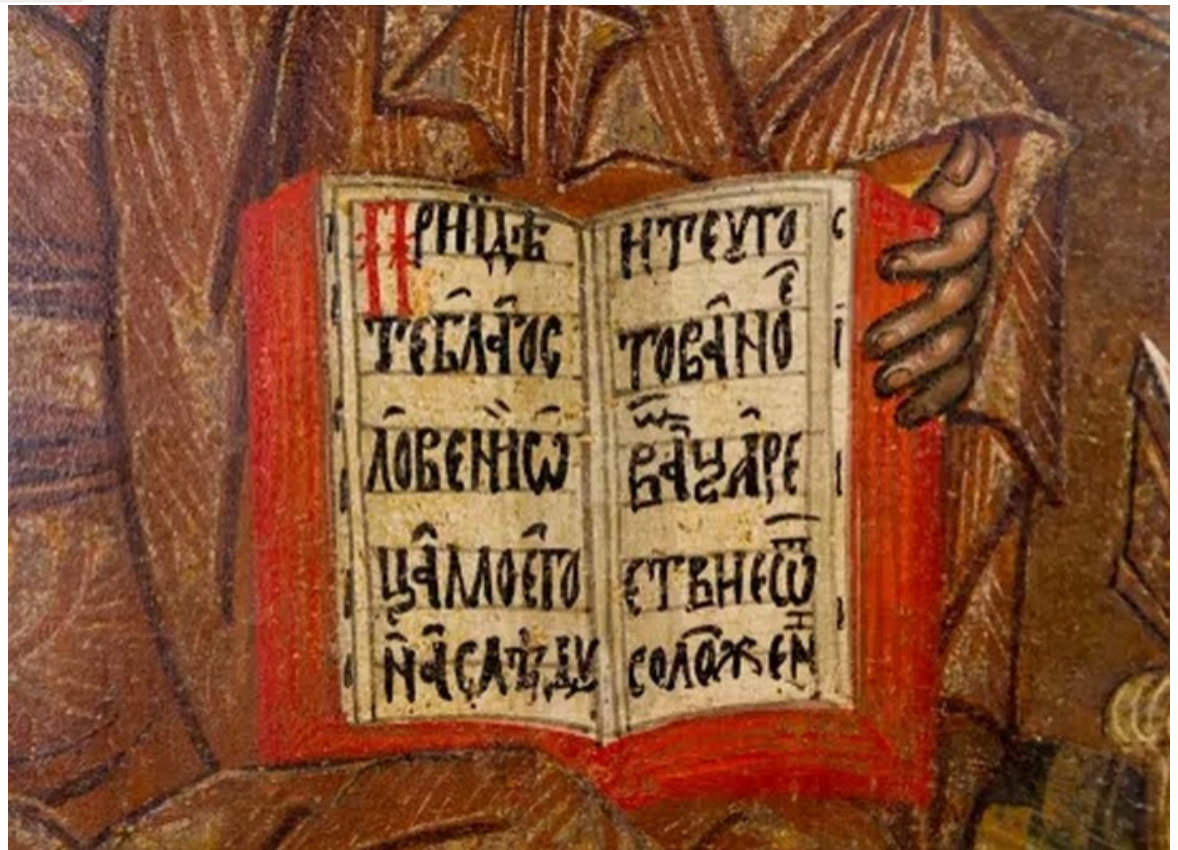 ПРИЇДѢ
ТЕБЛАГОС
ЛОВЕНЇѠ
ЦАМОЕГО
НАСЛѢДУ
ИТЕУГО
ТОВАНОЕ
ВАЦАРЕ
ЕТВИЕѾ
СОЛОЖЕН